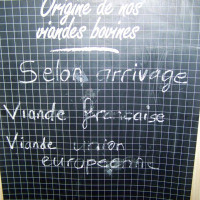 Origine de nos
viandes bovines
Selon arrivage
Viande française
Viande union
européenne